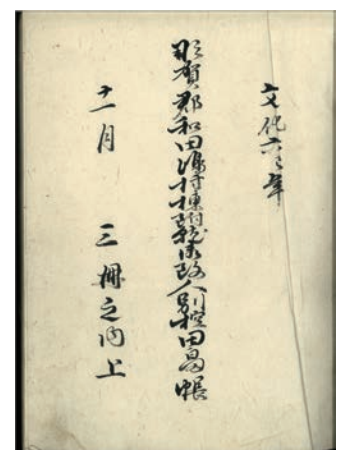 文化六巳年
那賀郡和田津村棟付龍𛂞改人別控田畠帳
十一月 三冊之内上